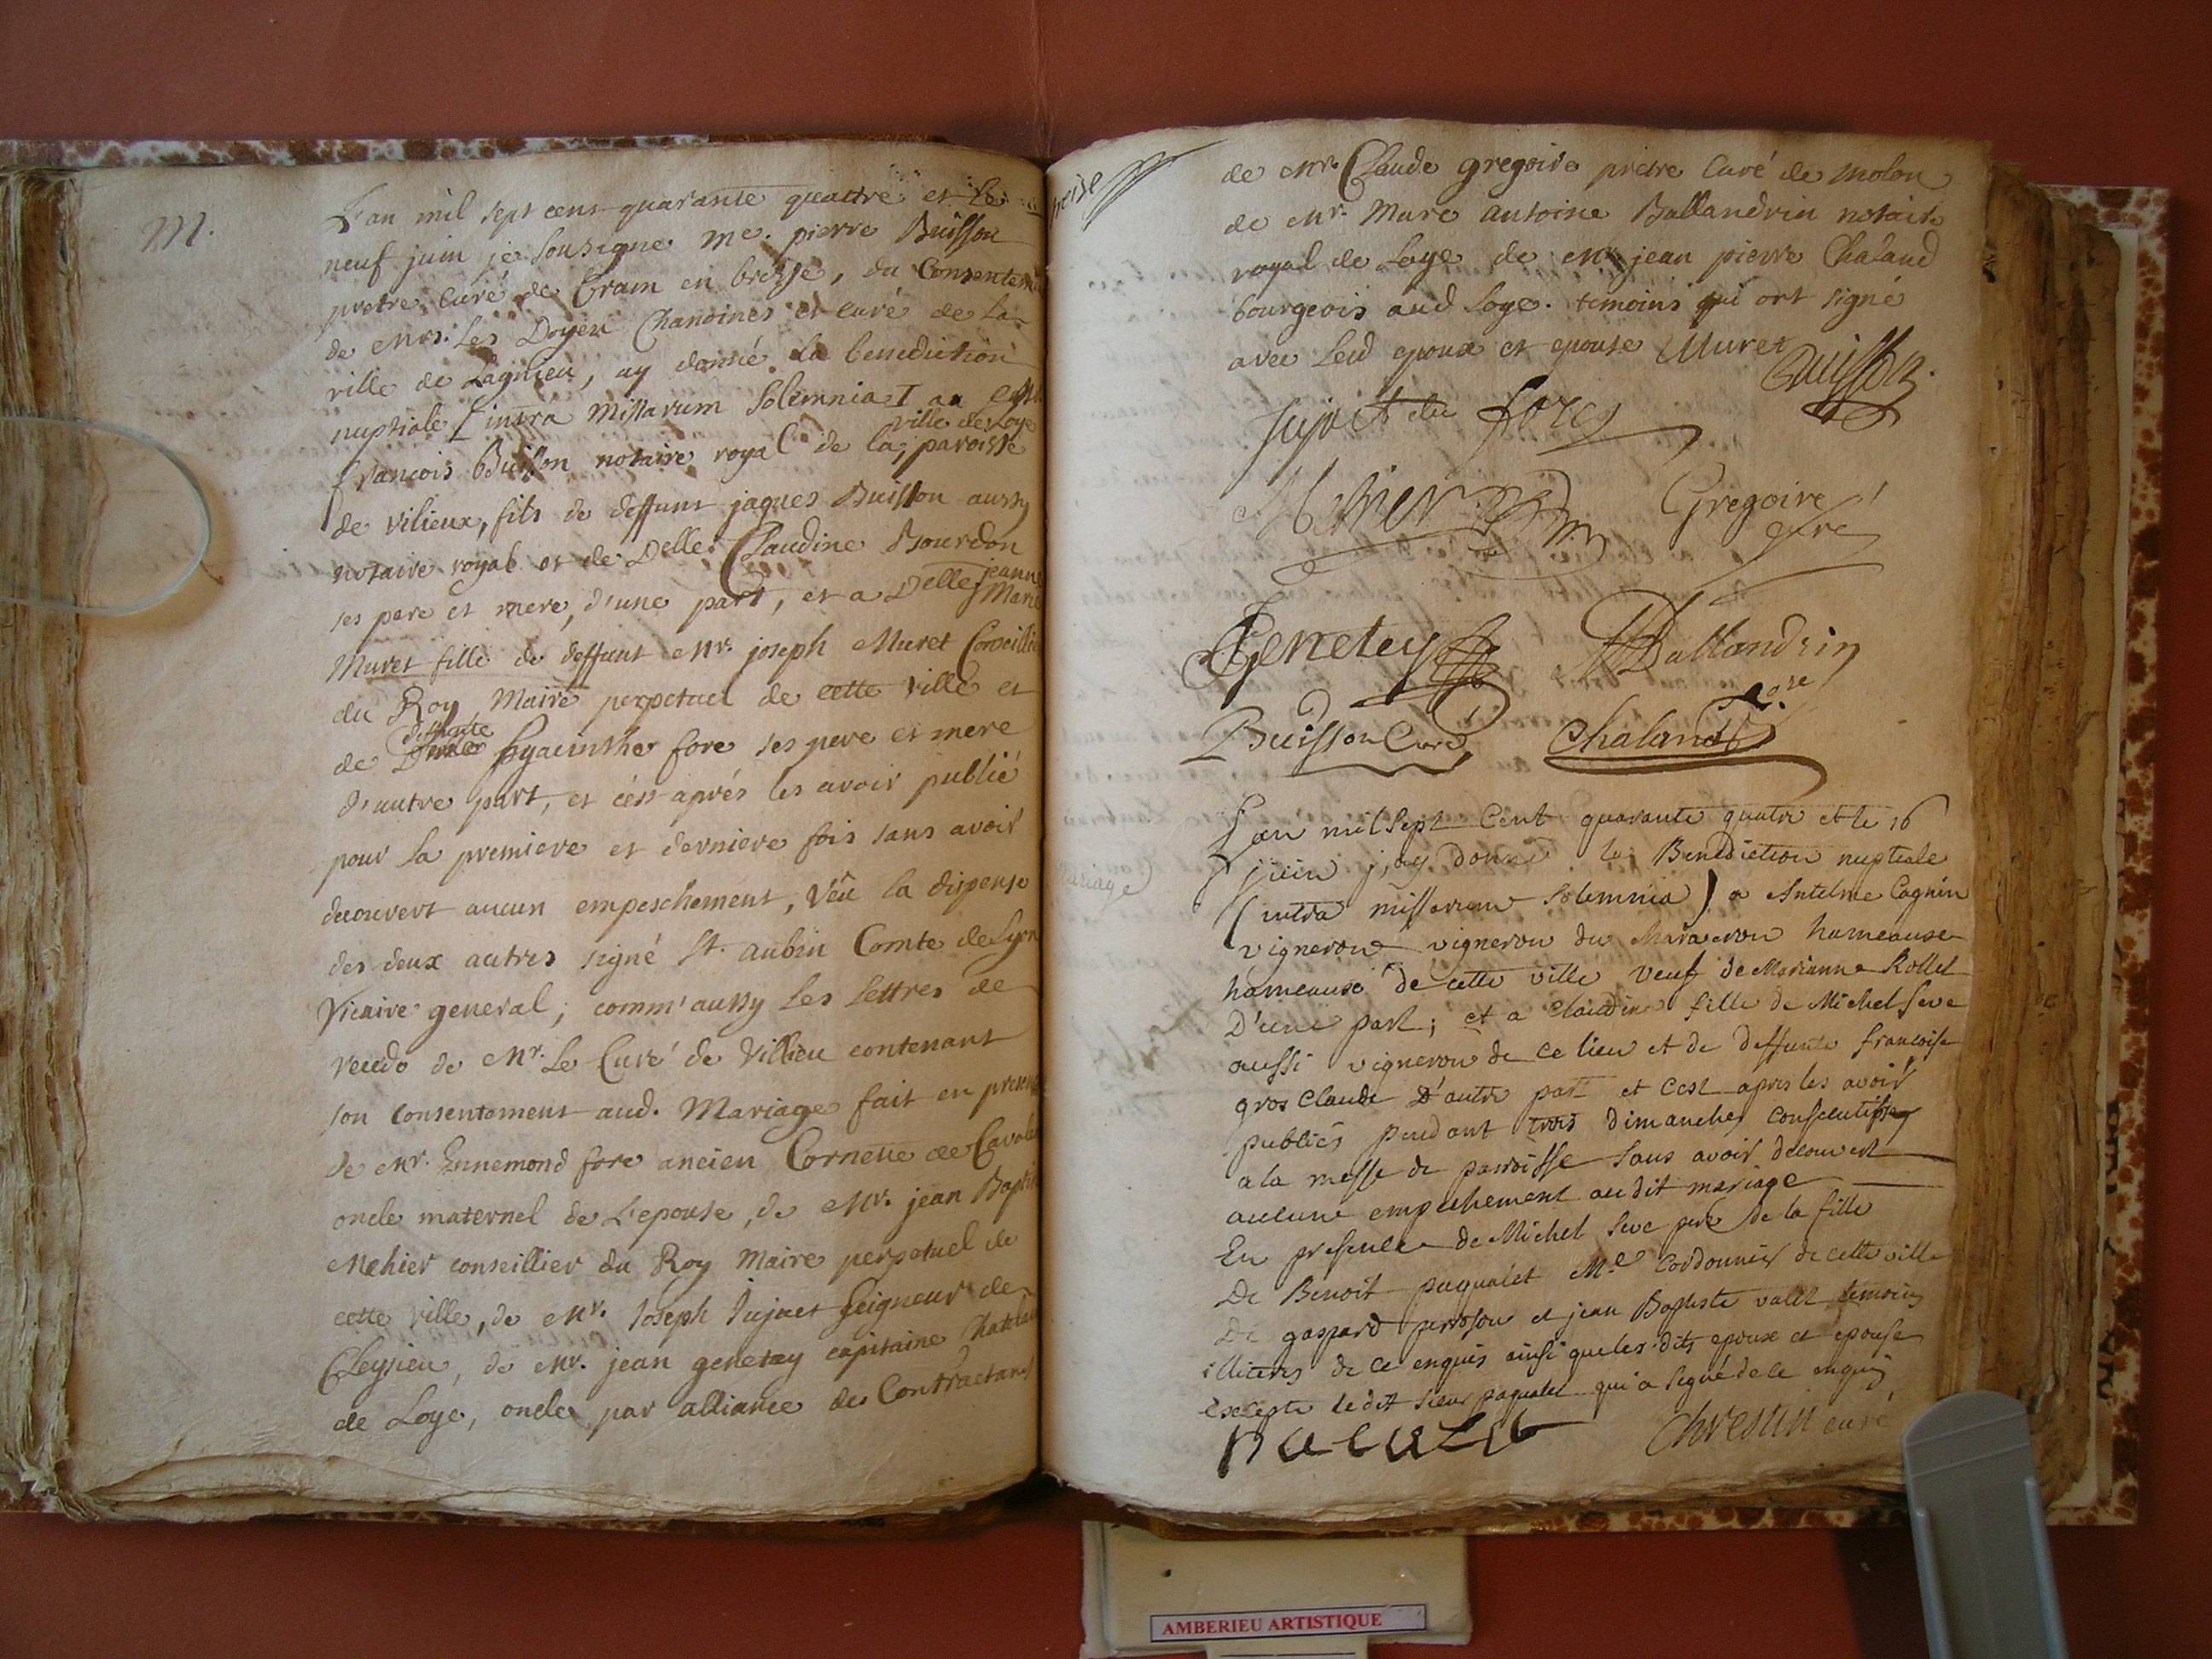 M.
L'an mil sept cens quarante quattre et le
neuf juin je sousigne me. pierre Buisson
pretre curé de Cram en bresse, du Consentem
de Mrs. Les Doyen Chanoines et curé de la
ville de Lagnieu, ay donné la benediction
nuptiale [intra Missarum Solemnia] a
ville de Loye
francois Buisson notaire royal de la, paroisse
de vilieux, fils de deffunt jaques Buisson aussy
notaire royal et de Delle. Claudine Bourdon
ses pere et mere, d'une part, et a Delle jeanne Marie
Muret fille de deffunt Mr. joseph Muret Conseillier
du Roy Maire perpetuel de cette ville et
deffunte
de hyacinthe fore ses pere et mere
d'autre part, et c'est aprés les avoir publié
pour la premiere et derniere fois sans avoir
decouvert aucun empeschement, Veü la dispense
des deux autres signé St. aubin Comte de Lyon
Vicaire general; comm'aussy les lettres de
recedo de Mr. Le Curé de Villieu contenant
son consentement aud. Mariage fait en presence
de Mr. Ennemond fore ancien Cornette de Cavale
oncle maternel de L'epouse, de Mr. jean Baptiste
Mehier conseillier du Roy Maire perpetuel de
cette ville, de Mr. Joseph Jujaet Seigneur de
Cleysieu, de Mr. jean genetay capitaine Chatelain
de Loye, oncle par alliance des Contractans
treise
de Mr. Claude gregoire pretre curé de molon
de Mr. Marc antoine Ballandrin notaire
royal de Loye de Mr jean pierre Chaland
bourgeois aud Loye. temoins qui ont signé
avec lesd epoux et epouse Muret
Buisson
Mehier
Gregoire
curé
Genetey
Ballandrin
Buisson Curé
Chaland
Mariage
L'an mil sept Cent quarante quatre et le 16
juin j'ay donné la Benediction nuptiale
(intra missarum solemnia) a Antelme Cagnin
vigneron vigneron du hameause
hameause de cette ville veuf de Marianne Rollet
D'une part; et a Claudine fille de Michel seve
aussi vigneron de ce lieu et de deffunte francoise
gros claude D'autre part et cest apres les avoir
publiés pendant trois dimanches consecutifs
a la messe de parroisse sans avoir decouvert
aucune empechement audit mariage
En presence de Michel seve pere de la fille
De Benoit paqualet Me. Cordonnier de cette ville
De gaspard perosson et jean Baptiste valet temoins
illiteres de ce enquis ainsi que les dits epoux et epouse
excepte le dit sieur paqualet qui a signé de ce enquis
Chrestin curé
AMBERIEU ARTISTIQUE